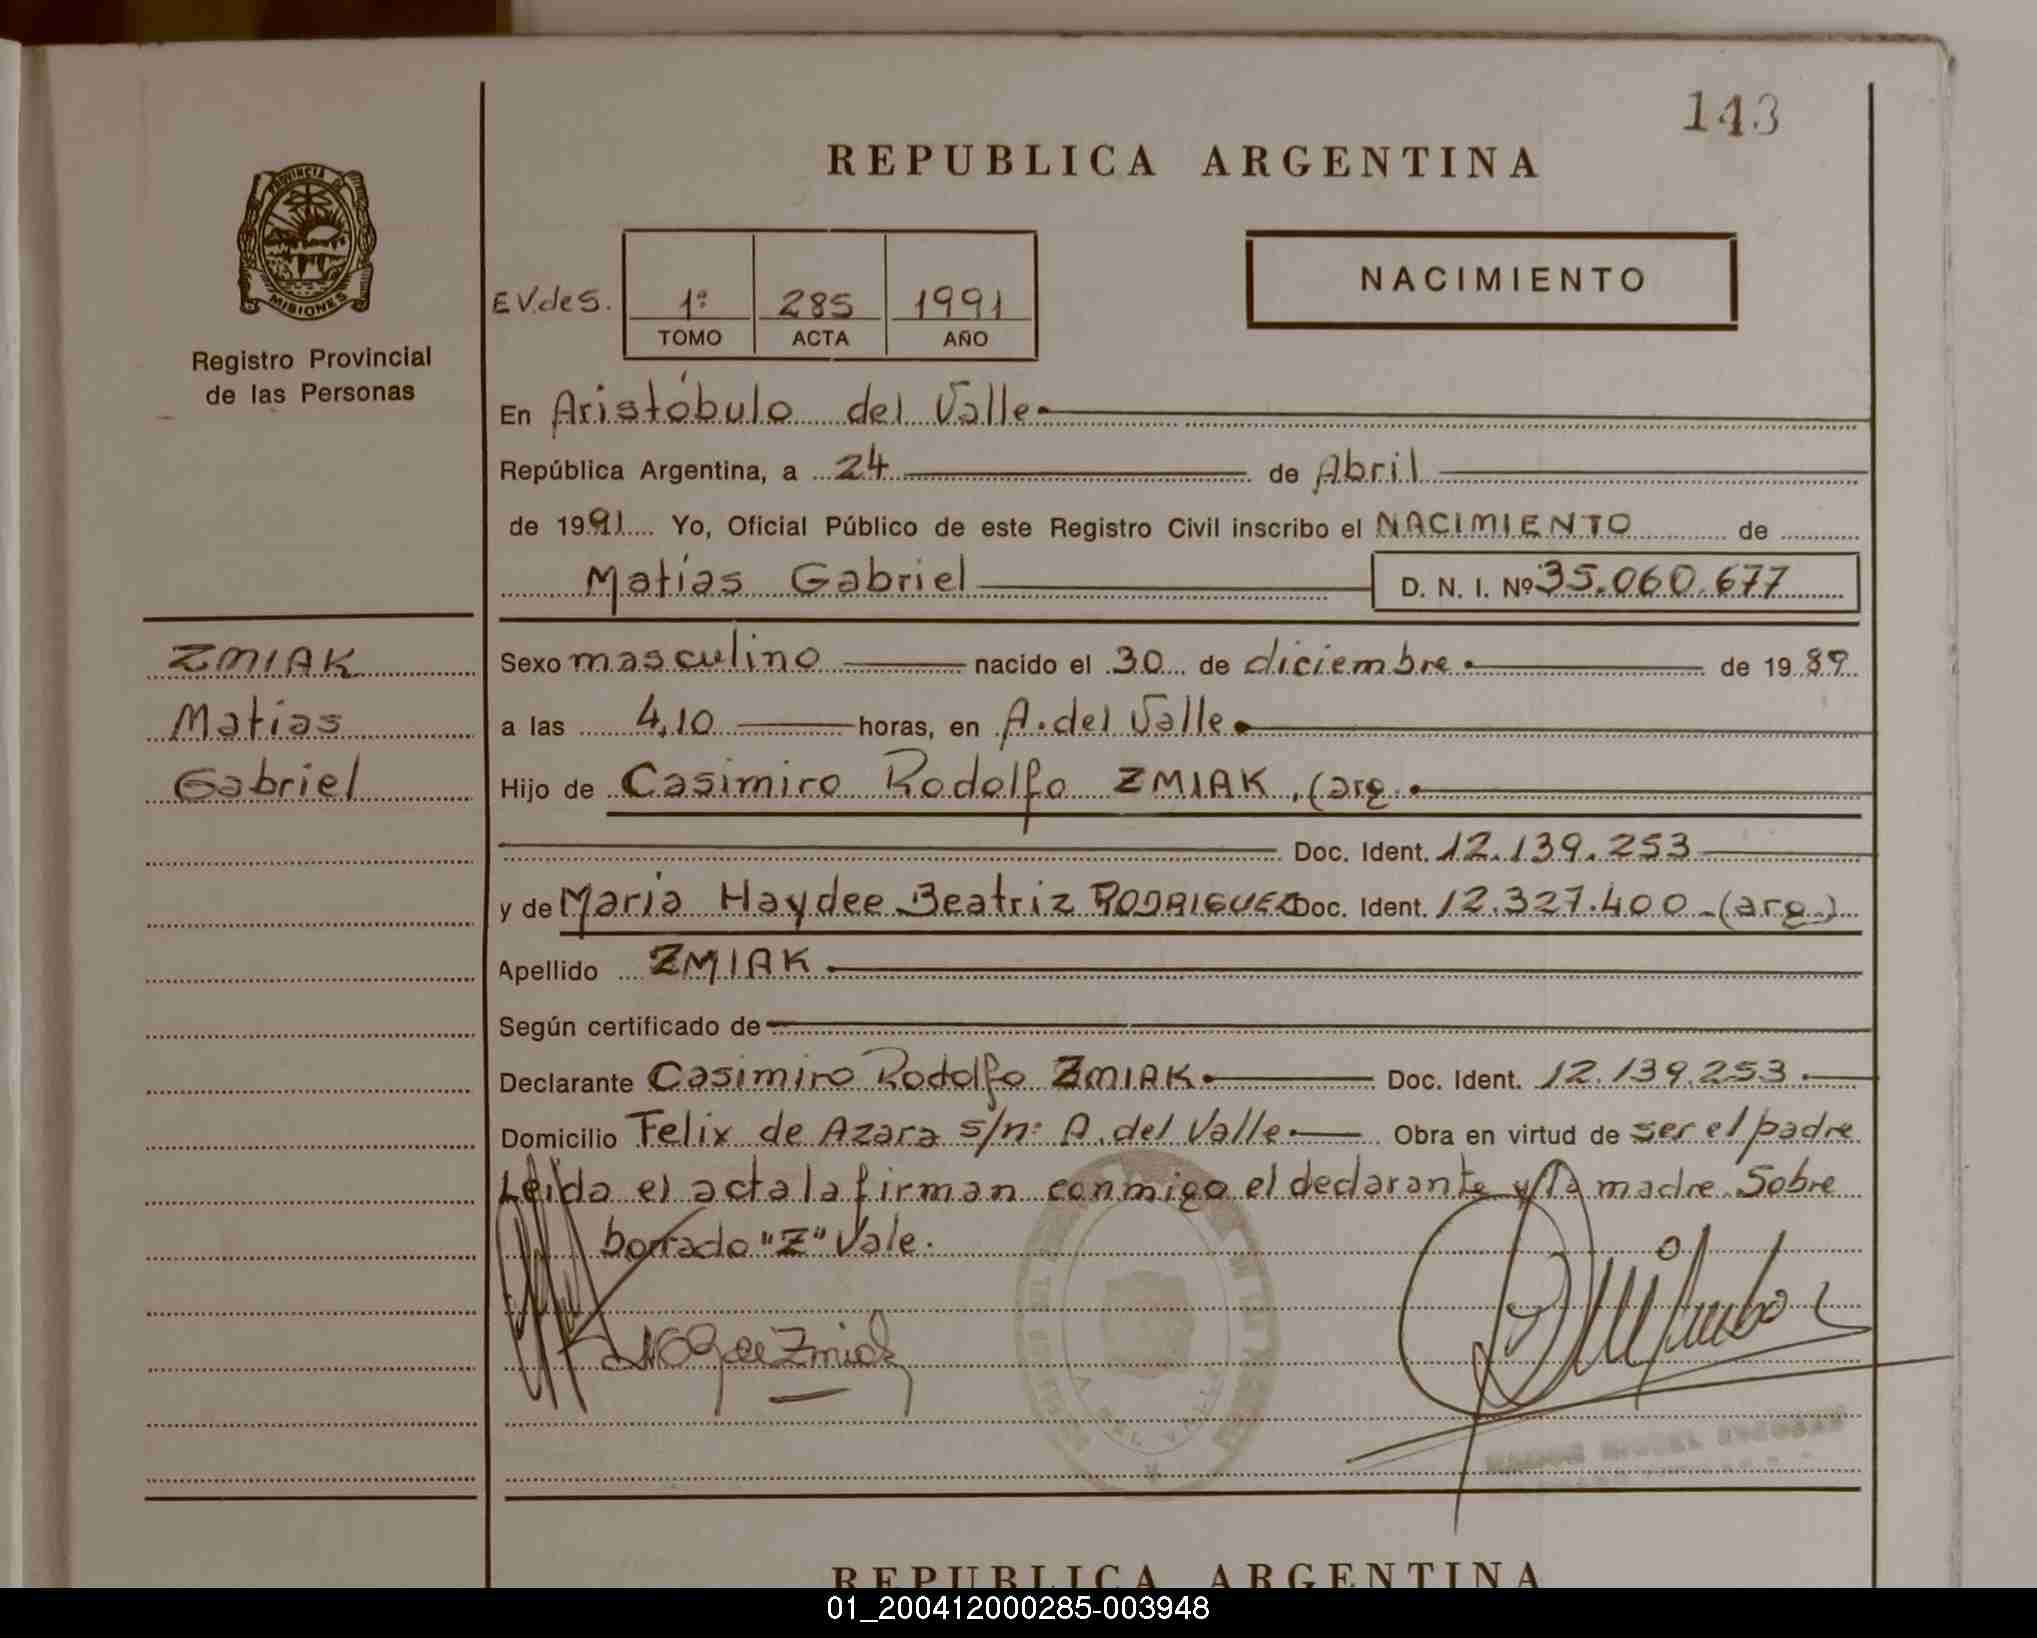 143
REPUBLICA ARGENTINA
PROVINCIA DE
MISIONES
Registro Provincial
de las Personas
E.V.des. 1º 285 1991
TOMO ACTA AÑO
NACIMIENTO
En Aristóbulo del Valle
República Argentina, a 24 de Abril
de 1991 Yo, Oficial Público de este Registro Civil inscribo el NACIMIENTO de
Matías Gabriel D. N. I. Nº 35.060.677
ZMIAK
Matias
Gabriel
Sexo masculino nacido el 30 de diciembre de 1989
a las 4,10 horas, en A. del Valle
Hijo de Casimiro Rodolfo ZMIAK, (arg.
Doc. Ident. 12.139.253
y de Maria Haydee Beatriz RODRIGUEZ Doc. Ident. 12.327.400 (arg.)
Apellido ZMIAK
Según certificado de
Declarante Casimiro Rodolfo ZMIAK Doc. Ident. 12.139.253
Domicilio Felix de Azara s/nº A. del Valle Obra en virtud de ser el padre
Leída el acta la firman conmigo el declarante y la madre. Sobre
borrado "Z" Vale.
de Zmiak
REPUBLICA ARGENTINA
01_200412000285-003948